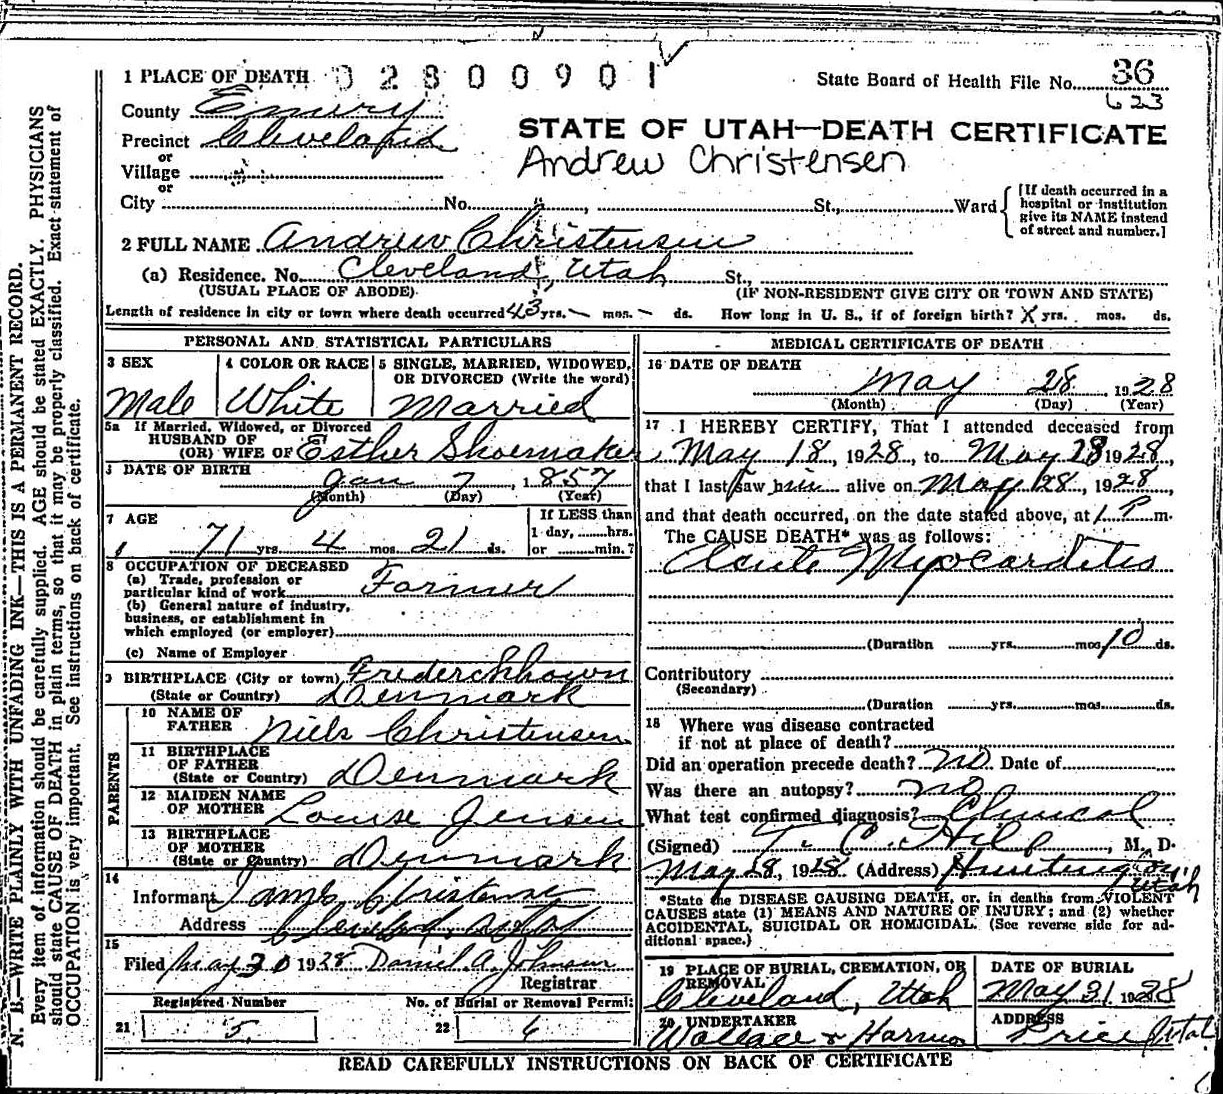 1 PLACE OF DEATH 02800901
State Board of Health File No. 36
623
County Emery
Precinct Cleveland
or
Village
or
STATE OF UTAH—DEATH CERTIFICATE
Andrew Christensen
City No. , St., Ward
[If death occurred in a hospital or institution give its NAME instead of street and number.]
2 FULL NAME Andrew Christensen
(a) Residence. No. Cleveland, Utah St.,
(USUAL PLACE OF ABODE) (IF NON-RESIDENT GIVE CITY OR TOWN AND STATE)
Length of residence in city or town where death occurred 43 yrs. — mos. — ds. How long in U. S., if of foreign birth? X yrs. mos. ds.
PERSONAL AND STATISTICAL PARTICULARS
3 SEX
Male
4 COLOR OR RACE
White
5 SINGLE, MARRIED, WIDOWED, OR DIVORCED (Write the word)
Married
5a If Married, Widowed, or Divorced
HUSBAND OF
(OR) WIFE OF Esther Shoemaker
DATE OF BIRTH
Jan 7, 1857
(Month) (Day) (Year)
7 AGE
71 yrs. 4 mos. 21 ds.
If LESS than
1 day, hrs.
or min.?
8 OCCUPATION OF DECEASED
(a) Trade, profession or
particular kind of work Farmer
(b) General nature of industry,
business, or establishment in
which employed (or employer)
(c) Name of Employer
9 BIRTHPLACE (City or town) Frederckhawn
(State or Country) Denmark
PARENTS
10 NAME OF
FATHER Niels Christensen
11 BIRTHPLACE
OF FATHER
(State or Country) Denmark
12 MAIDEN NAME
OF MOTHER Louise Jensen
13 BIRTHPLACE
OF MOTHER
(State or Country) Denmark
14
Informant James Christensen
Address Cleveland, Utah
15
Filed May 30 1928 Daniel A. Johnson
Registrar
Registered Number
21 5
No. of Burial or Removal Permit
22 6
MEDICAL CERTIFICATE OF DEATH
16 DATE OF DEATH
May 28, 1928
(Month) (Day) (Year)
17 I HEREBY CERTIFY, That I attended deceased from
May 18, 1928, to May 28 1928,
that I last saw him alive on May 28, 1928,
and that death occurred, on the date stated above, at 1 P m.
The CAUSE DEATH* was as follows:
Acute Myocarditis
(Duration yrs. mos. 10 ds.
Contributory
(Secondary)
(Duration yrs. mos. ds.
18 Where was disease contracted
if not at place of death?
Did an operation precede death? no Date of
Was there an autopsy? no
What test confirmed diagnosis? Clinical
(Signed) T. C. Hill, M. D.
May 28, 1928 (Address) Huntington
Utah
*State the DISEASE CAUSING DEATH, or, in deaths from VIOLENT
CAUSES state (1) MEANS AND NATURE OF INJURY; and (2) whether
ACCIDENTAL, SUICIDAL OR HOMICIDAL. (See reverse side for ad-
ditional space.)
19 PLACE OF BURIAL, CREMATION, OR
REMOVAL
Cleveland, Utah
DATE OF BURIAL
May 31 1928
20 UNDERTAKER
Wallace & Harmon
ADDRESS
Price Utah
READ CAREFULLY INSTRUCTIONS ON BACK OF CERTIFICATE
N. B.—WRITE PLAINLY WITH UNFADING INK—THIS IS A PERMANENT RECORD.
Every item of information should be carefully supplied. AGE should be stated EXACTLY. PHYSICIANS
should state CAUSE OF DEATH in plain terms, so that it may be properly classified. Exact statement of
OCCUPATION is very important. See instructions on back of certificate.